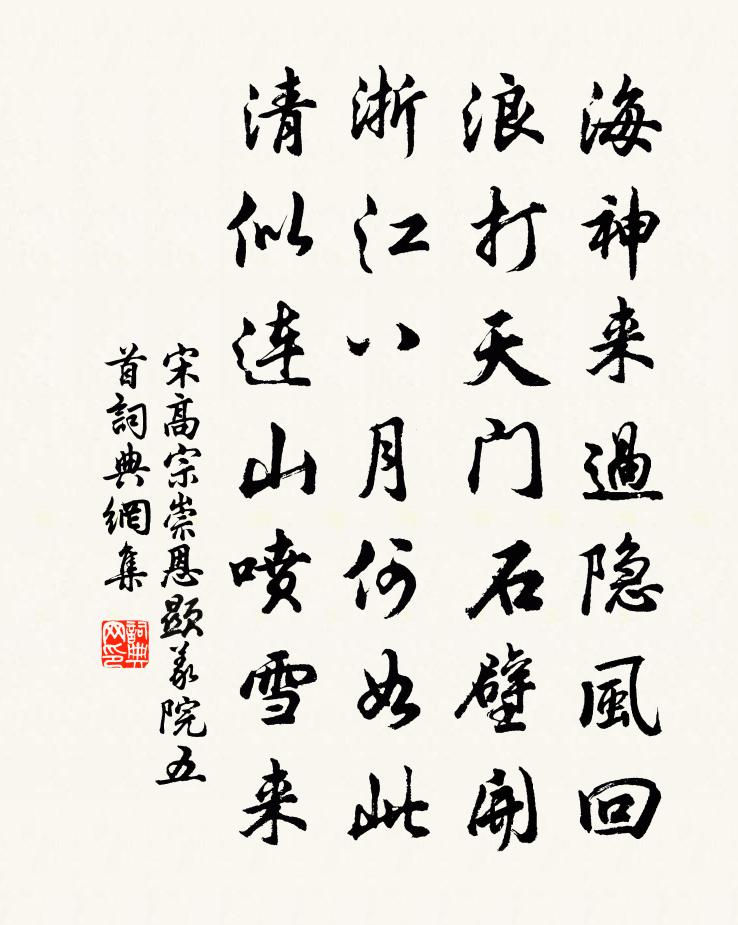 海神来過隐風回
浪打天门石壁開
浙江八月何如此
清似連山噴雪来
宋高宗崇恩顯義院五
首詞典網集
詞典
网印